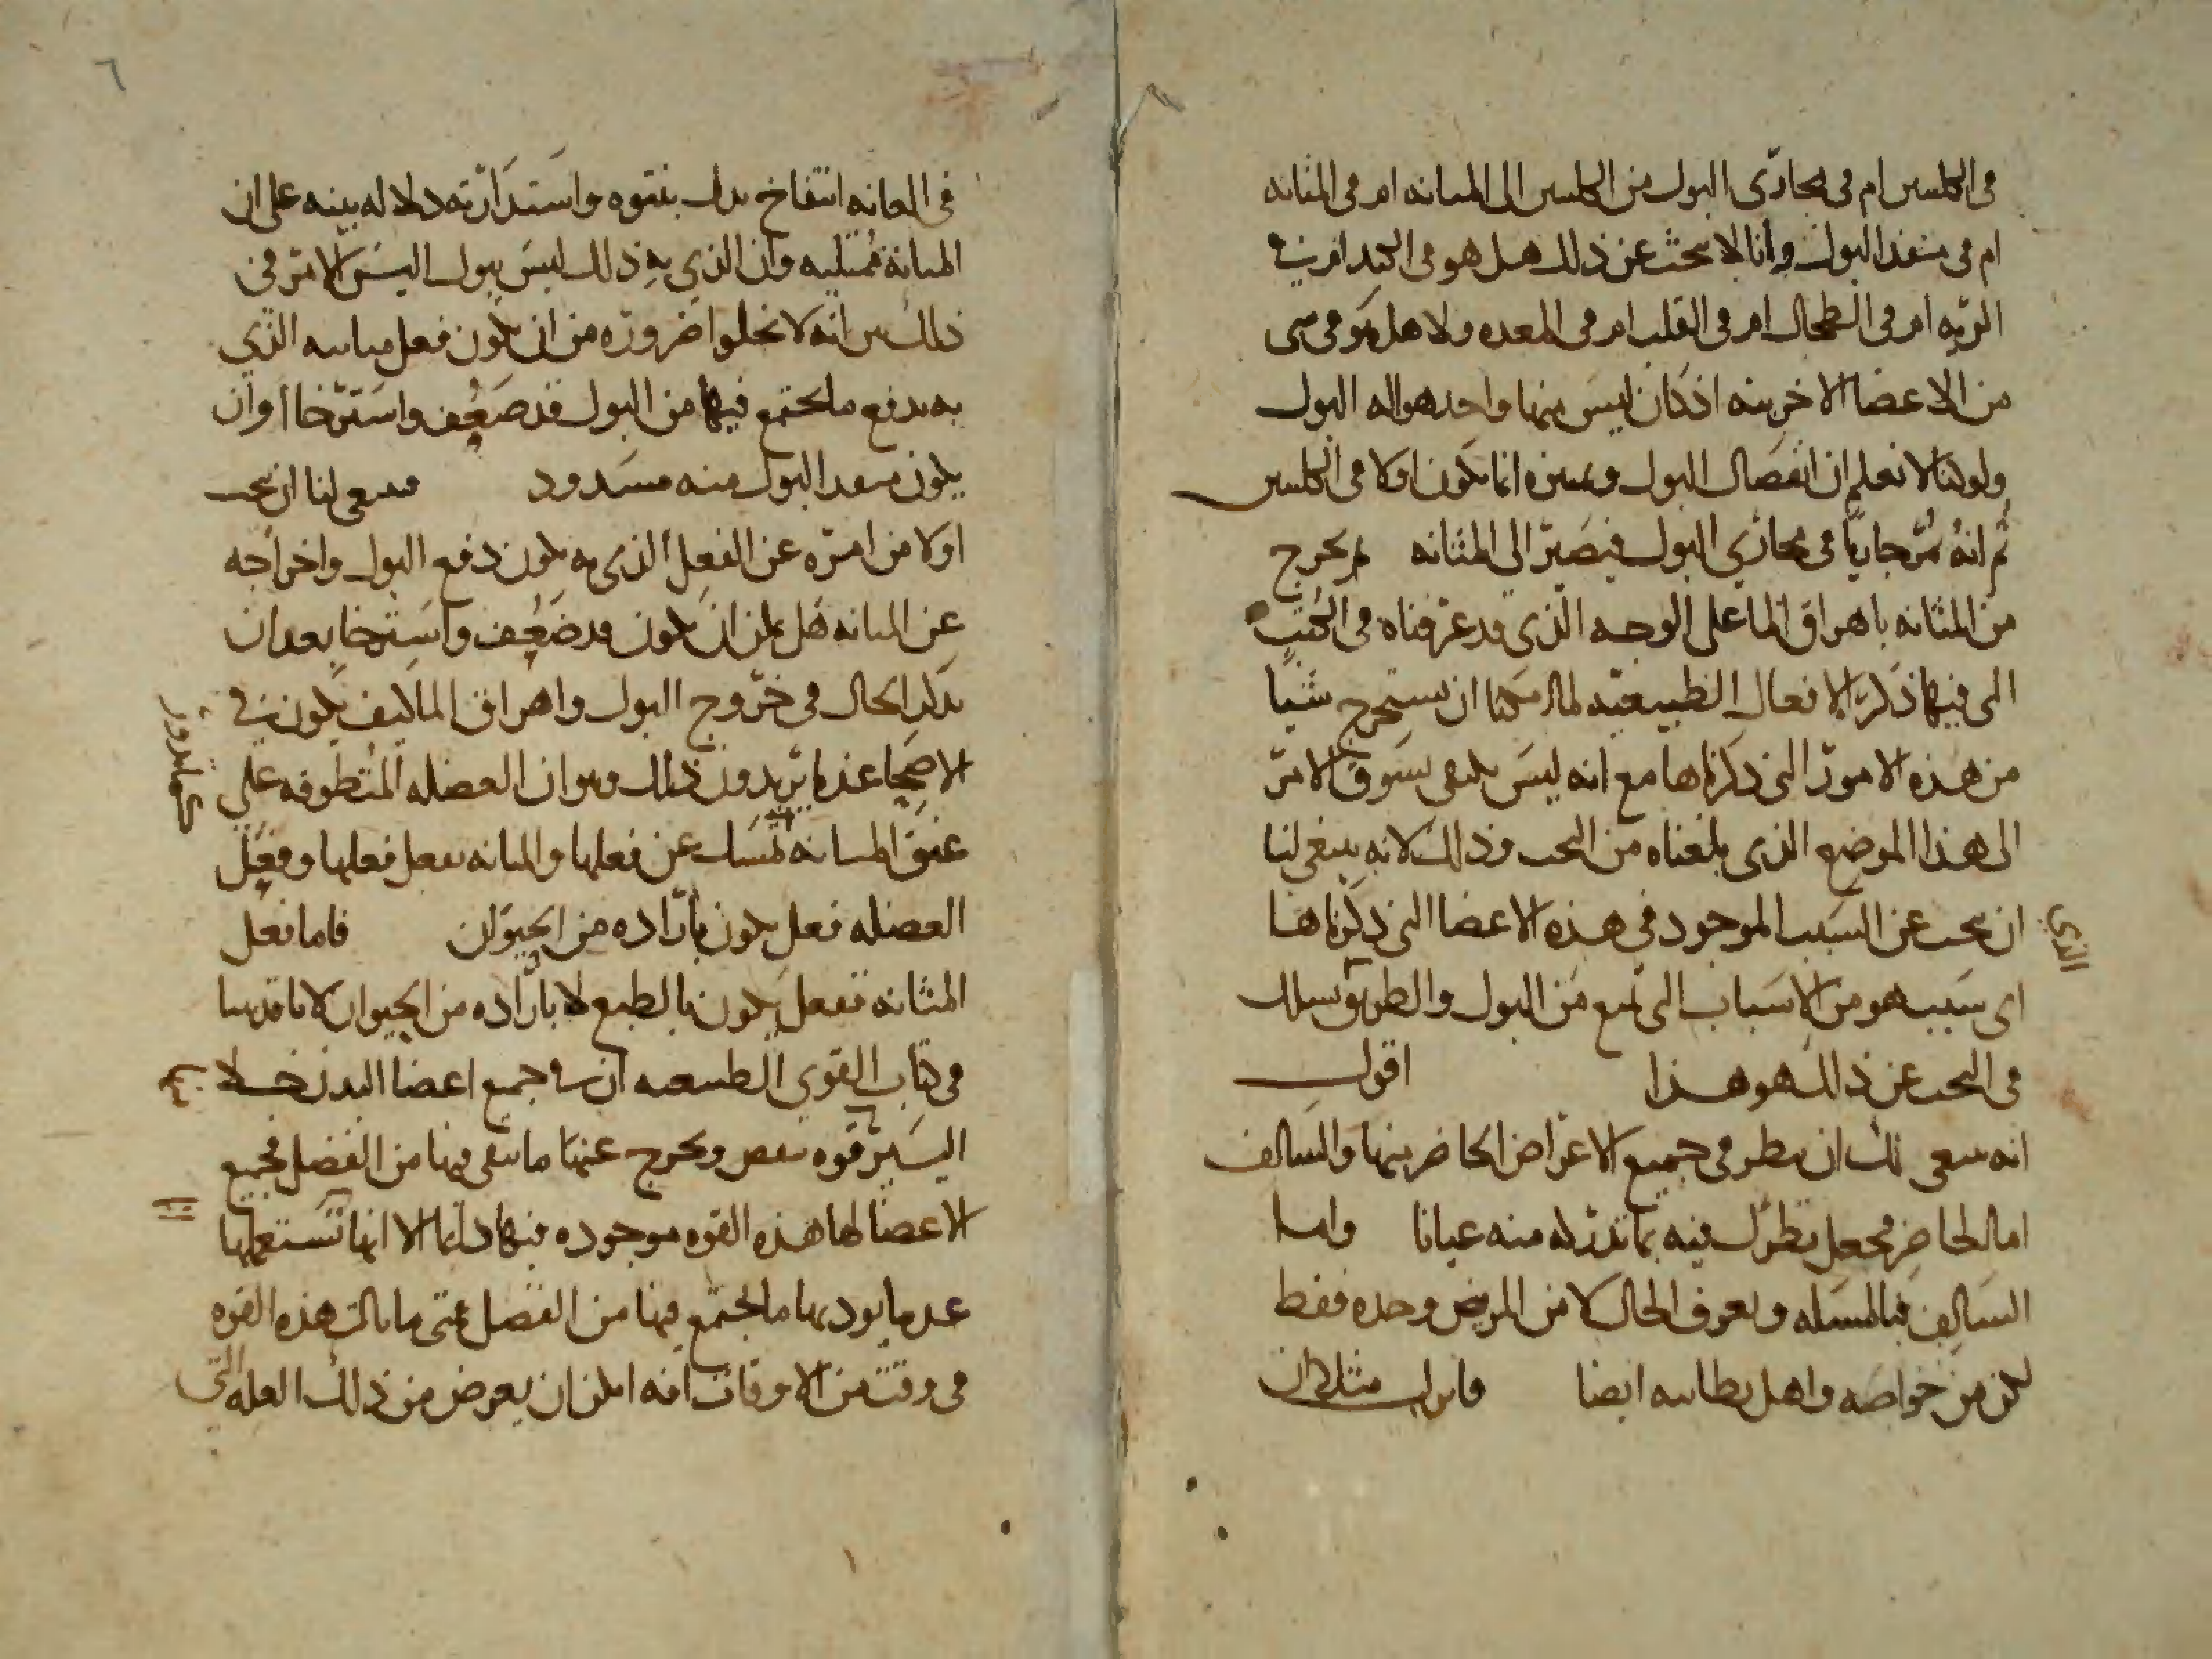 في الكليتين ام في مجاري البول من الكليتين الى المثانه ام في المثانه
ام في منفذ البول وانا لا نبحث عن ذلك هل هو في الكبد ام في
الريه ام في الطحال ام في القلب ام في المعده ولا هل هو في شي
من الاعضا الاخر بته اذ كان ليس منها واحد هو اله البول
ولو كنا لا نعلم ان انفصال البول وتميزه انما يكون اولا في الكليتين
ثم انه يمر جاريا في مجاري البول فيصير الى المثانه ثم يخرج
من المثانه باهراق الما على الوجه الذي قد عرفناه في الكتب
التي فيها ذكر الافعال الطبيعيه لما امكننا ان نستخرج شيا
من هذه الامور التي ذكرناها مع انه ليس يكتفى بسوق الامر
الى هذا الموضع الذي بلغناه من البحث وذلك لانه ينبغي لنا
ان نبحث عن السبب الموجود في هذه الاعضا التي ذكرناها
الذي
اي سبب هو من الاسباب التي تمنع من البول والطريق نسلك
في البحث عن ذلك هو هذا اقول
انه ينبغي لك ان تنظر في جميع الاعراض الحاضر منها والسالف
اما الحاضر فيجعل نظرك فيه بما تدركه منه عيانا واما
السالف فبالمسله وتعرف الحال لا من المريض وحده فقط
لكن من خواصه واهل بطانته ايضا فانزل مثلا ان
٦
في العانه انتفاخ يدل بنتوه واستدارته دلاله بينه على ان
المثانة ممتليه وان الذي به ذلك ليس يبول اليس الامر في
ذلك بين انه لا يخلوا ضروره من ان يكون فعل مثانته الذي
به يدفع ما يجتمع فيها من البول قد ضعف واسترخا او ان
يكون منفذ البول منه مسدود فينبغي لنا ان نبحث
اولا من امره عن الفعل الذي به يكون دفع البول واخراجه
عن المثانه هل يمكن ان يكون قد ضعف واسترخا بعد ان
نذكر الحال في خروج البول واهراق الما كيف يكون في
الاصحا عندما يريدون ذلك وهو ان العضله المتطوقه على
عنق المثانه تمسك عن فعلها والمثانه تفعل فعلها وفعل
العضله فعل يكون باراده من الحيوان فاما فعل
المثانه ففعل يكون بالطبع لا باراده من الحيوان لانا قد بينا
في كتاب القوي الطبيعيه ان في جميع اعضا البدن خلا
اليسير قوه تنفض وتخرج عنها ما يبقى فيها من الفضل فجميع
الاعضا لها هذه القوه موجوده فيها دايما الا انها تستعملها
عندما يوديها ما يجتمع فيها من الفضل فمتى ما نالت هذه القوه
في وقت من الاوقات افه امكن ان يعرض من ذلك العله التي